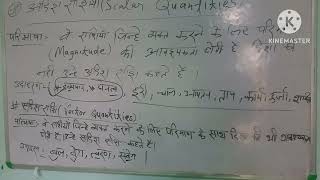 अदिश राशियाँ (Scalar Quantities)
परिभाषा: वे राशियाँ जिन्हें व्यक्त करने के लिए परिमाण
(Magnitude) की आवश्यकता होती है दिशा की
नहीं उन्हें अदिश राशि कहते हैं।
उदाहरण: द्रव्यमान, घनत्व, दूरी, चाल, आयतन, ताप, कार्य, ऊर्जा,
सदिश राशि (Vector Quantities)
परिभाषा: वे राशियाँ जिन्हें व्यक्त करने के लिए परिमाण के साथ दिशा की भी आवश्यकता
होती है उन्हें सदिश राशि कहते हैं।
उदाहरण: बल, वेग, त्वरण, संवेग
KINEMASTER